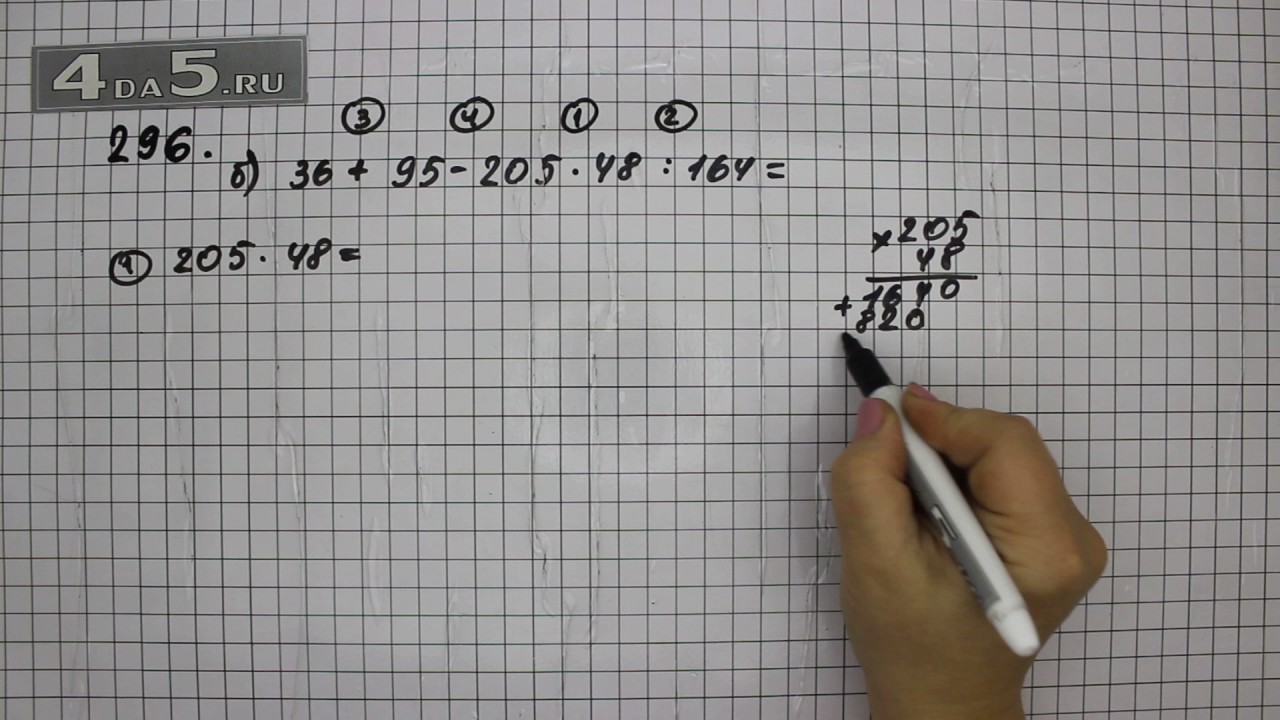 4DA5.RU
③ ④ ① ②
296.
б) 36 + 95 - 205 · 48 : 164 =
① 205 · 48 =
× 205
48
+ 1640
820